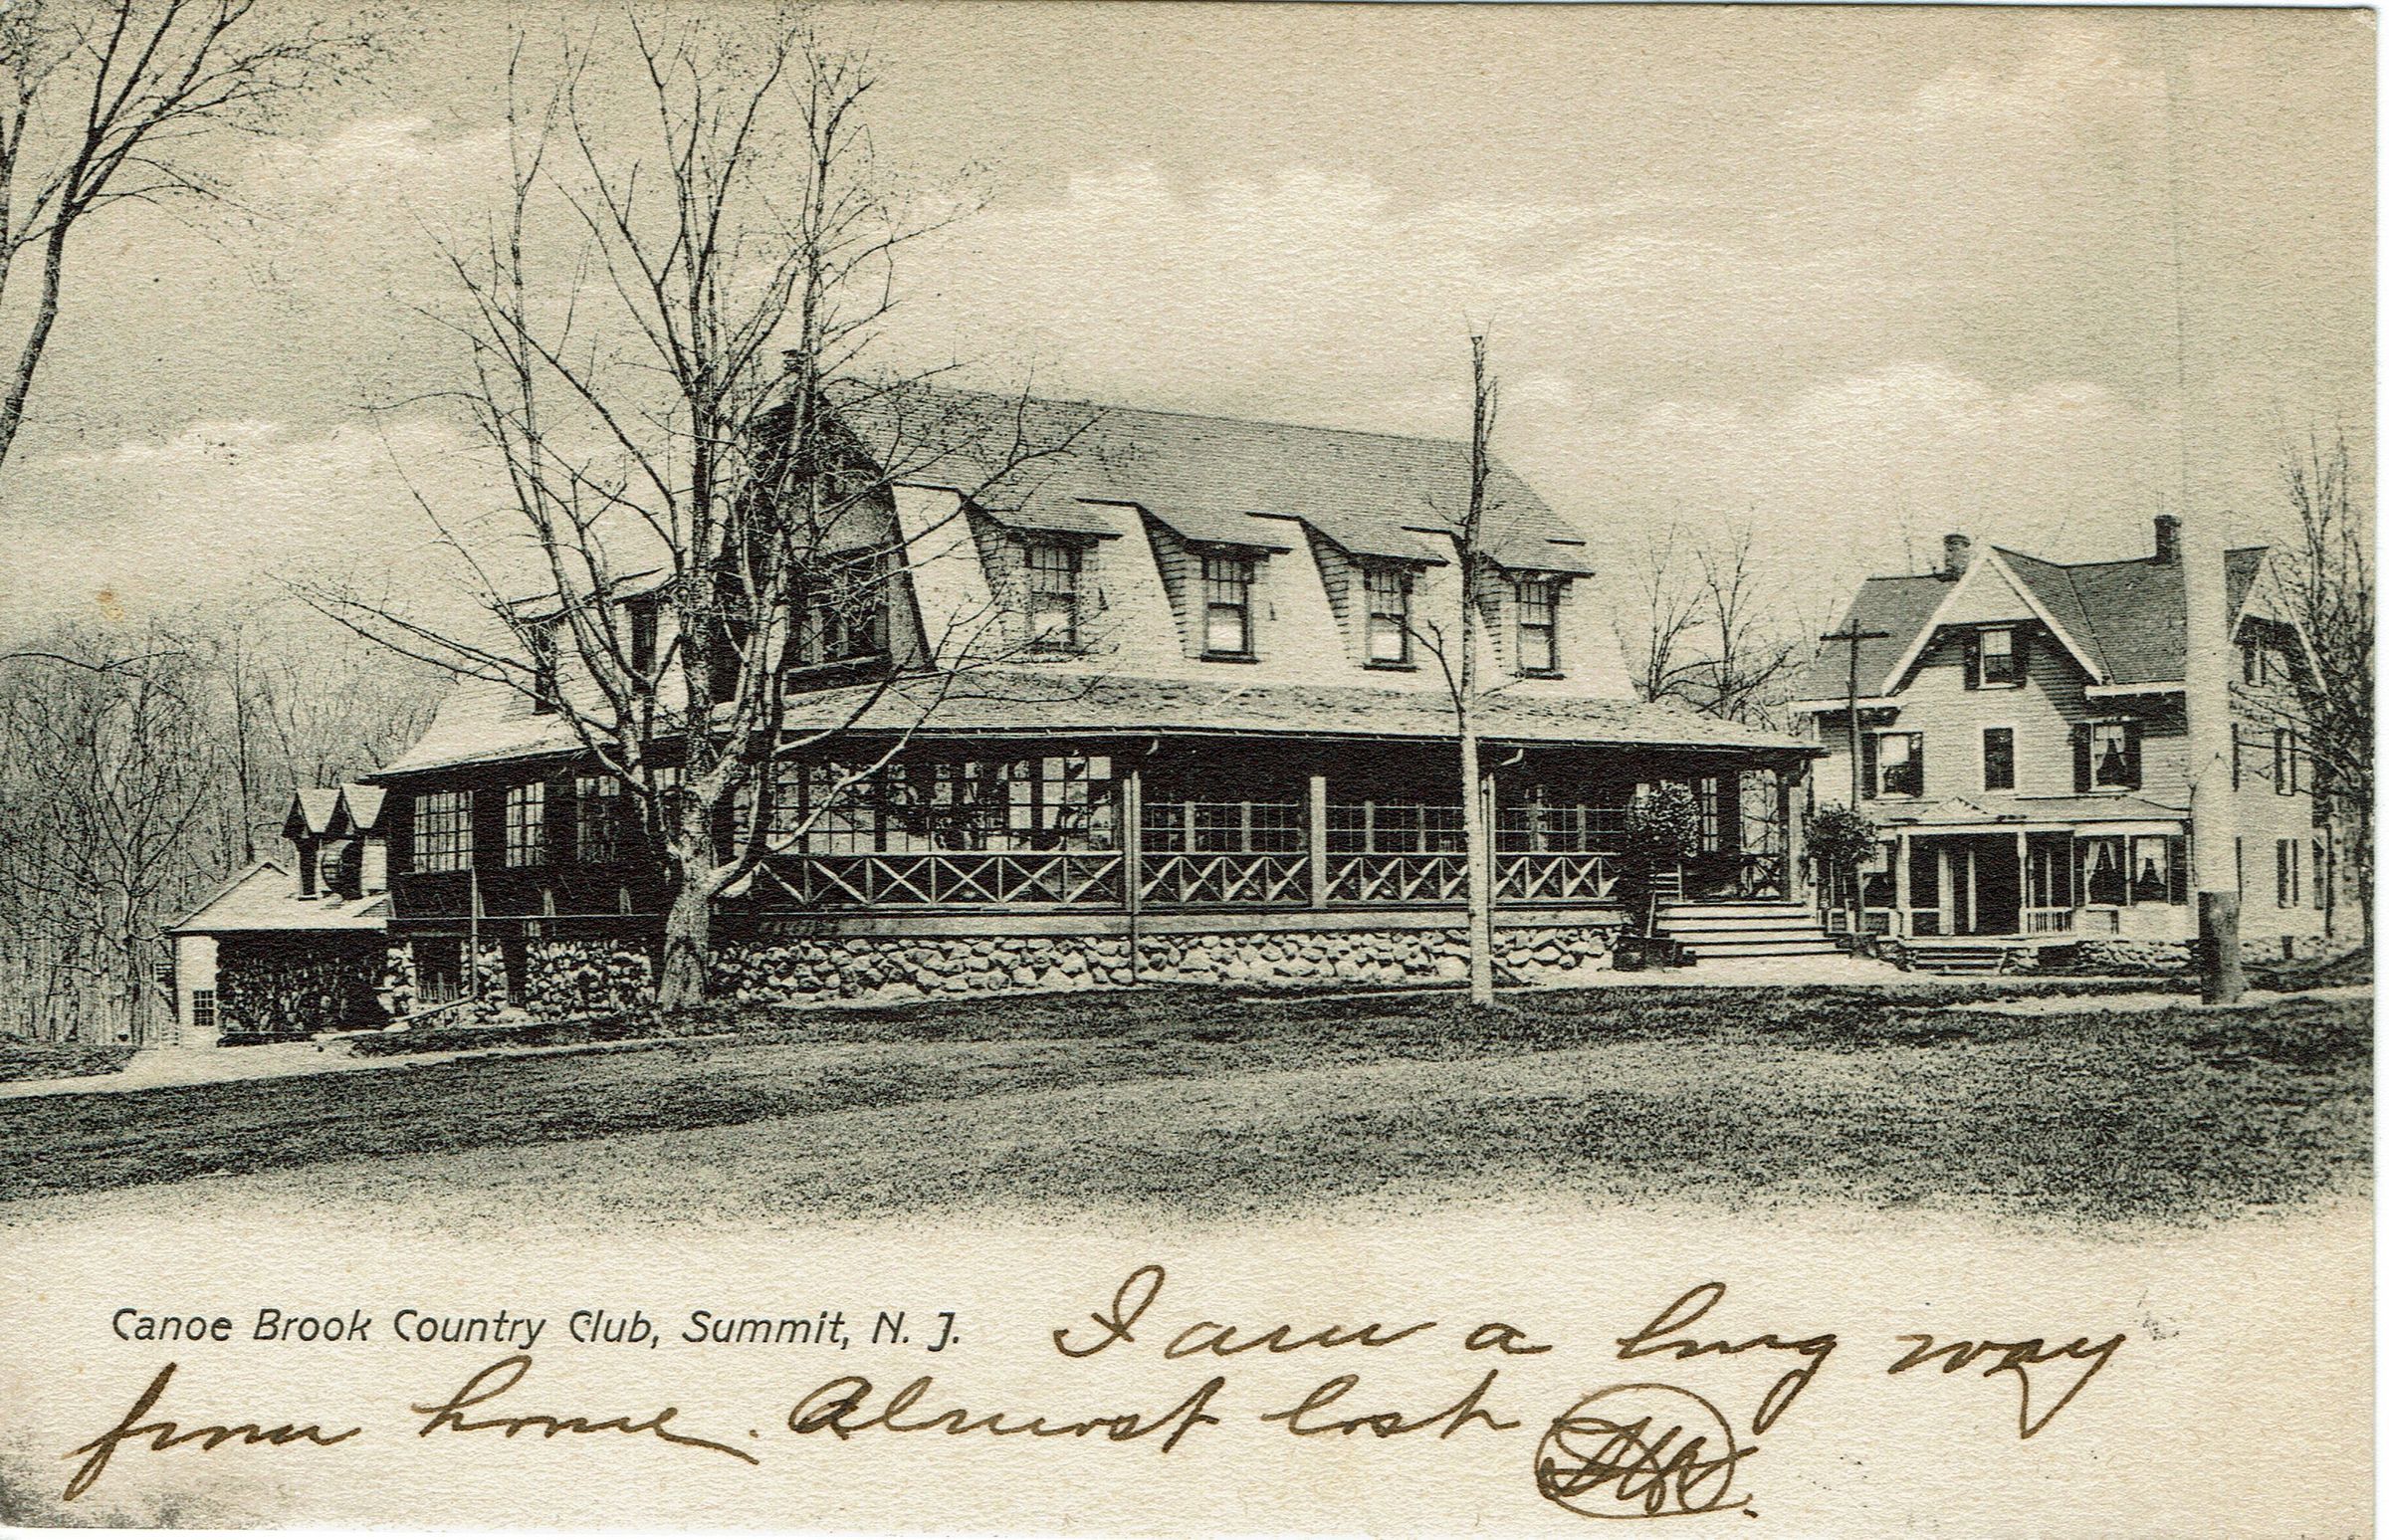 Canoe Brook Country Club, Summit, N. J. I am a long way
from home. Almost lost